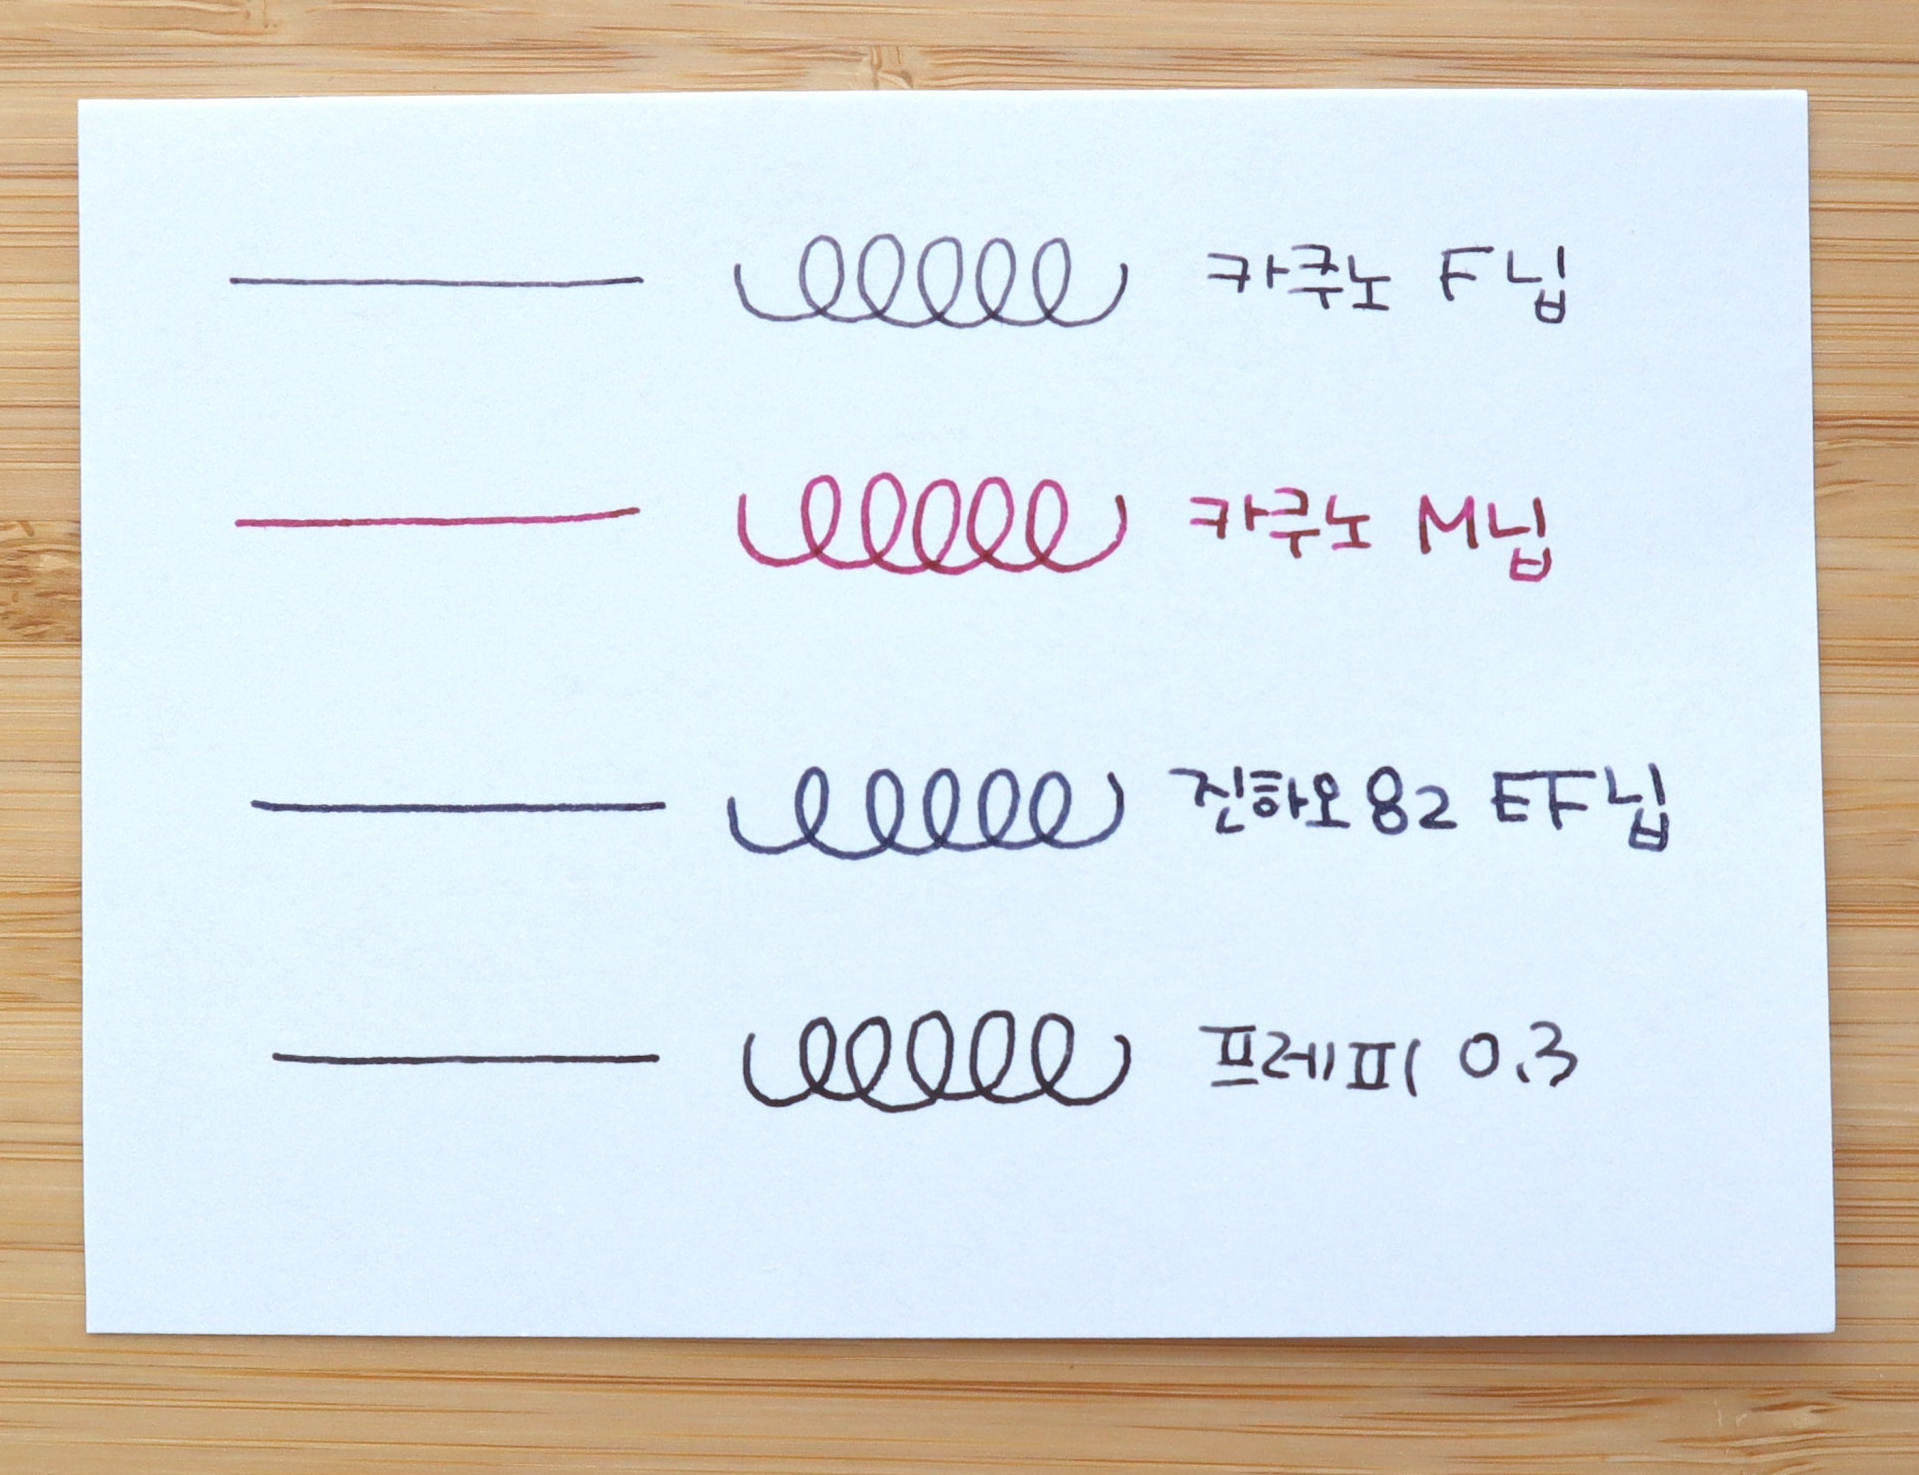 카쿠노 F닙
카쿠노 M닙
진하오82 EF닙
프레피 0.3